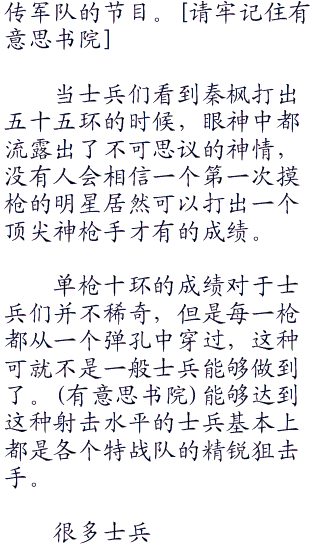 传军队的节目。[请牢记住有
意思书院]
当士兵们看到秦枫打出
五十五环的时候，眼神中都
流露出了不可思议的神情，
没有人会相信一个第一次摸
枪的明星居然可以打出一个
顶尖神枪手才有的成绩。
单枪十环的成绩对于士
兵们并不稀奇，但是每一枪
都从一个弹孔中穿过，这种
可就不是一般士兵能够做到
了。(有意思书院)能够达到
这种射击水平的士兵基本上
都是各个特战队的精锐狙击
手。
很多士兵